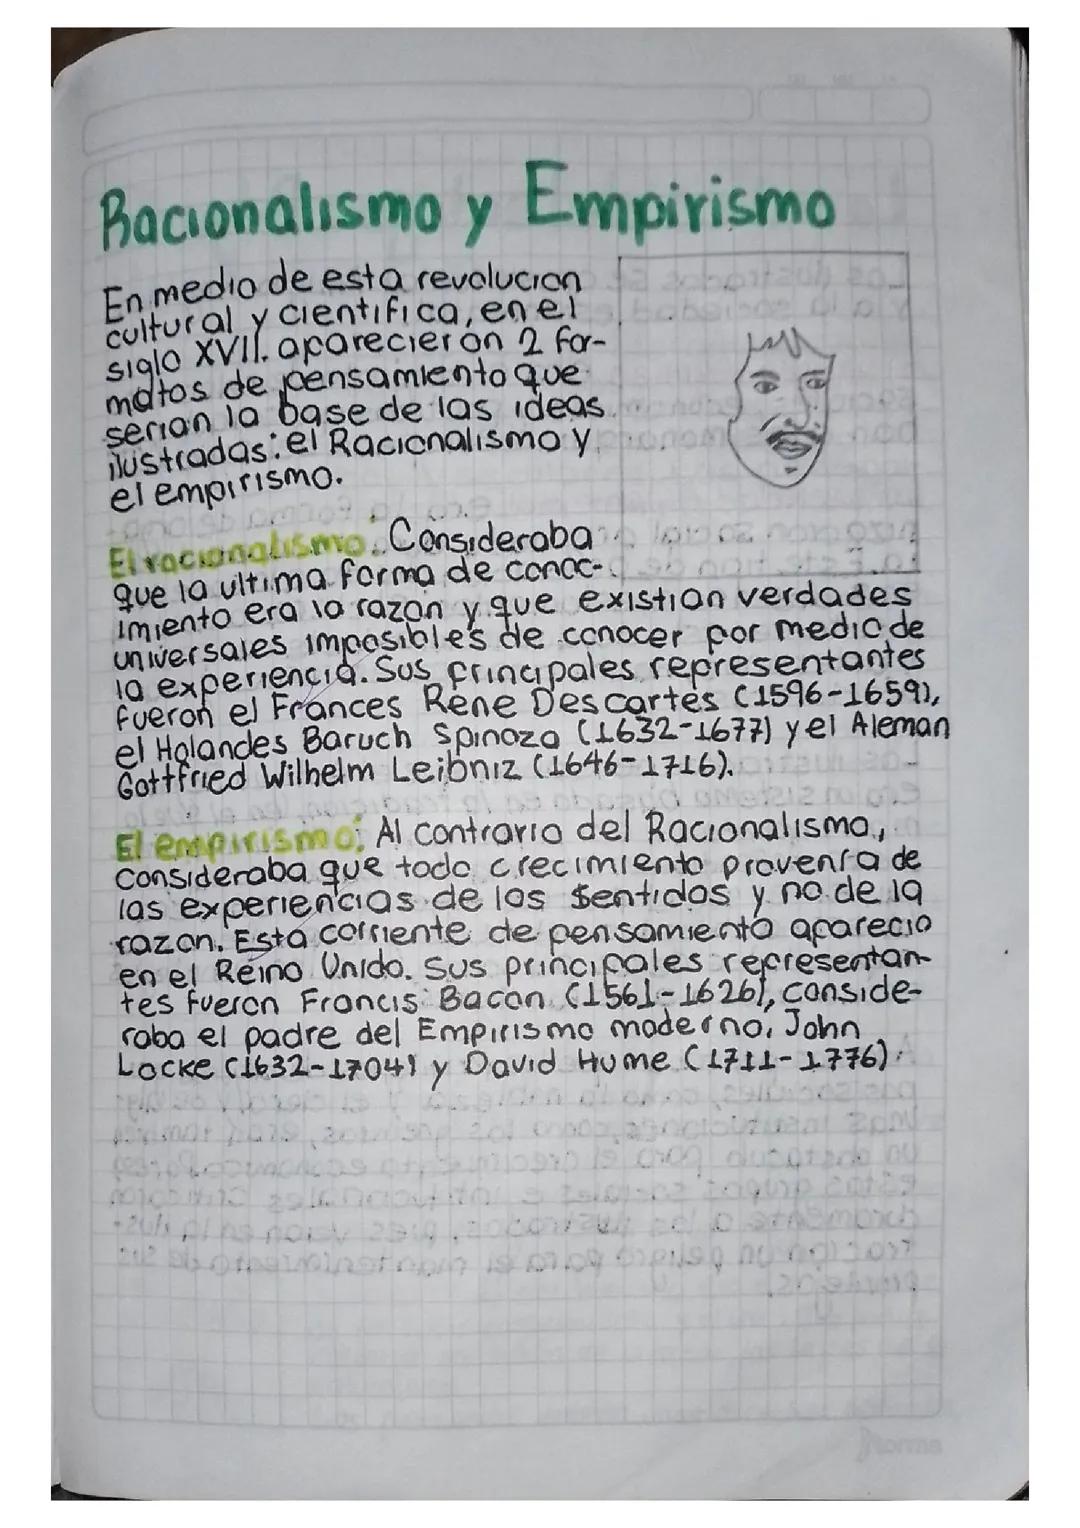 Racionalismo y Empirismo
En medio de esta revolucion
cultural y cientifica, en el
siglo XVII. aparecieron 2 for-
matos de pensamiento que
serian la base de las ideas
ilustradas: el Racionalismo y
el empirismo.
El racionalismo: Consideraba
que la ultima forma de conoc-
imiento era la razon y que existian verdades
universales imposibles de conocer por medio de
la experiencia. Sus principales representantes
fueron el Frances Rene Descartes (1596-1659),
el Holandes Baruch Spinoza (1632-1677) y el Aleman
Gottfried Wilhelm Leibniz (1646-1716).
El empirismo: Al contrario del Racionalismo,
Consideraba que todo crecimiento provenia de
las experiencias de los sentidos y no de la
razon. Esta corriente de pensamiento aparecio
en el Reino Unido. Sus principales representan-
tes fueron Francis Bacon (1561-1626), conside-
raba el padre del Empirismo moderno, John
Locke (1632-1704) y David Hume (1711-1776).
Norma